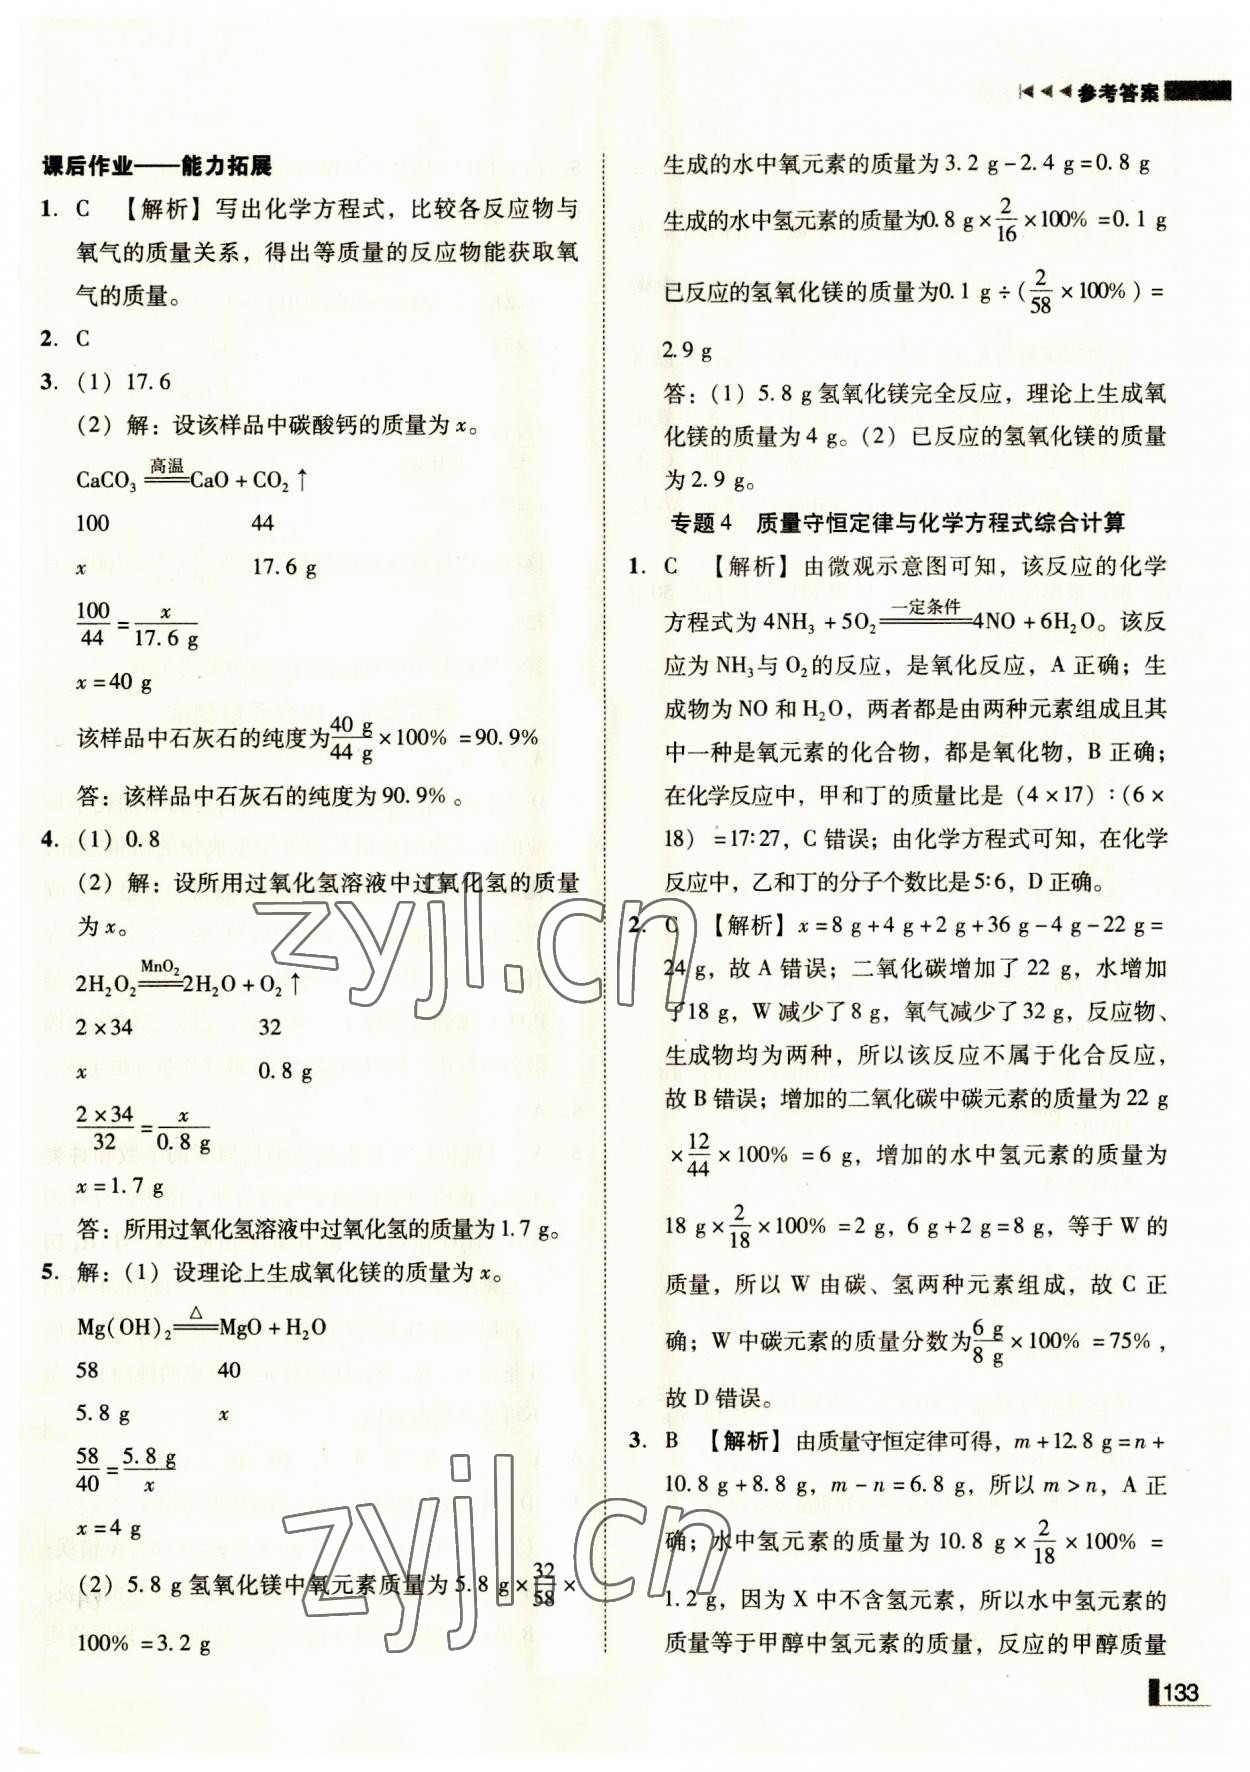 参考答案
课后作业——能力拓展
1. C 【解析】写出化学方程式，比较各反应物与
氧气的质量关系，得出等质量的反应物能获取氧
气的质量。
2. C
3. (1) 17.6
(2) 解：设该样品中碳酸钙的质量为 x。
CaCO₃ =高温= CaO + CO₂↑
100 44
x 17.6 g
100/44 = x/17.6 g
x = 40 g
该样品中石灰石的纯度为 40 g/44 g × 100% = 90.9%
答：该样品中石灰石的纯度为 90.9%。
4. (1) 0.8
(2) 解：设所用过氧化氢溶液中过氧化氢的质量
为 x。
2H₂O₂ =MnO₂= 2H₂O + O₂↑
2×34 32
x 0.8 g
2×34/32 = x/0.8 g
x = 1.7 g
答：所用过氧化氢溶液中过氧化氢的质量为 1.7 g。
5. 解：(1) 设理论上生成氧化镁的质量为 x。
Mg(OH)₂ =△= MgO + H₂O
58 40
5.8 g x
58/40 = 5.8 g/x
x = 4 g
(2) 5.8 g 氢氧化镁中氧元素质量为 5.8 g × 32/58 ×
100% = 3.2 g
生成的水中氧元素的质量为 3.2 g − 2.4 g = 0.8 g
生成的水中氢元素的质量为 0.8 g × 2/16 × 100% = 0.1 g
已反应的氢氧化镁的质量为 0.1 g ÷ (2/58 × 100%) =
2.9 g
答：(1) 5.8 g 氢氧化镁完全反应，理论上生成氧
化镁的质量为 4 g。(2) 已反应的氢氧化镁的质量
为 2.9 g。
专题 4 质量守恒定律与化学方程式综合计算
1. C 【解析】由微观示意图可知，该反应的化学
方程式为 4NH₃ + 5O₂ =一定条件= 4NO + 6H₂O。该反
应为 NH₃ 与 O₂ 的反应，是氧化反应，A 正确；生
成物为 NO 和 H₂O，两者都是由两种元素组成且其
中一种是氧元素的化合物，都是氧化物，B 正确；
在化学反应中，甲和丁的质量比是 (4×17)∶(6×
18) = 17∶27，C 错误；由化学方程式可知，在化学
反应中，乙和丁的分子个数比是 5∶6，D 正确。
2. C 【解析】x = 8 g + 4 g + 2 g + 36 g − 4 g − 22 g =
24 g，故 A 错误；二氧化碳增加了 22 g，水增加
了 18 g，W 减少了 8 g，氧气减少了 32 g，反应物、
生成物均为两种，所以该反应不属于化合反应，
故 B 错误；增加的二氧化碳中碳元素的质量为 22 g
× 12/44 × 100% = 6 g，增加的水中氢元素的质量为
18 g × 2/18 × 100% = 2 g，6 g + 2 g = 8 g，等于 W 的
质量，所以 W 由碳、氢两种元素组成，故 C 正
确；W 中碳元素的质量分数为 6 g/8 g × 100% = 75%，
故 D 错误。
3. B 【解析】由质量守恒定律可得，m + 12.8 g = n +
10.8 g + 8.8 g，m − n = 6.8 g，所以 m > n，A 正
确；水中氢元素的质量为 10.8 g × 2/18 × 100% =
1.2 g，因为 X 中不含氢元素，所以水中氢元素的
质量等于甲醇中氢元素的质量，反应的甲醇质量
133
zyjl.cn
zyjl.cn